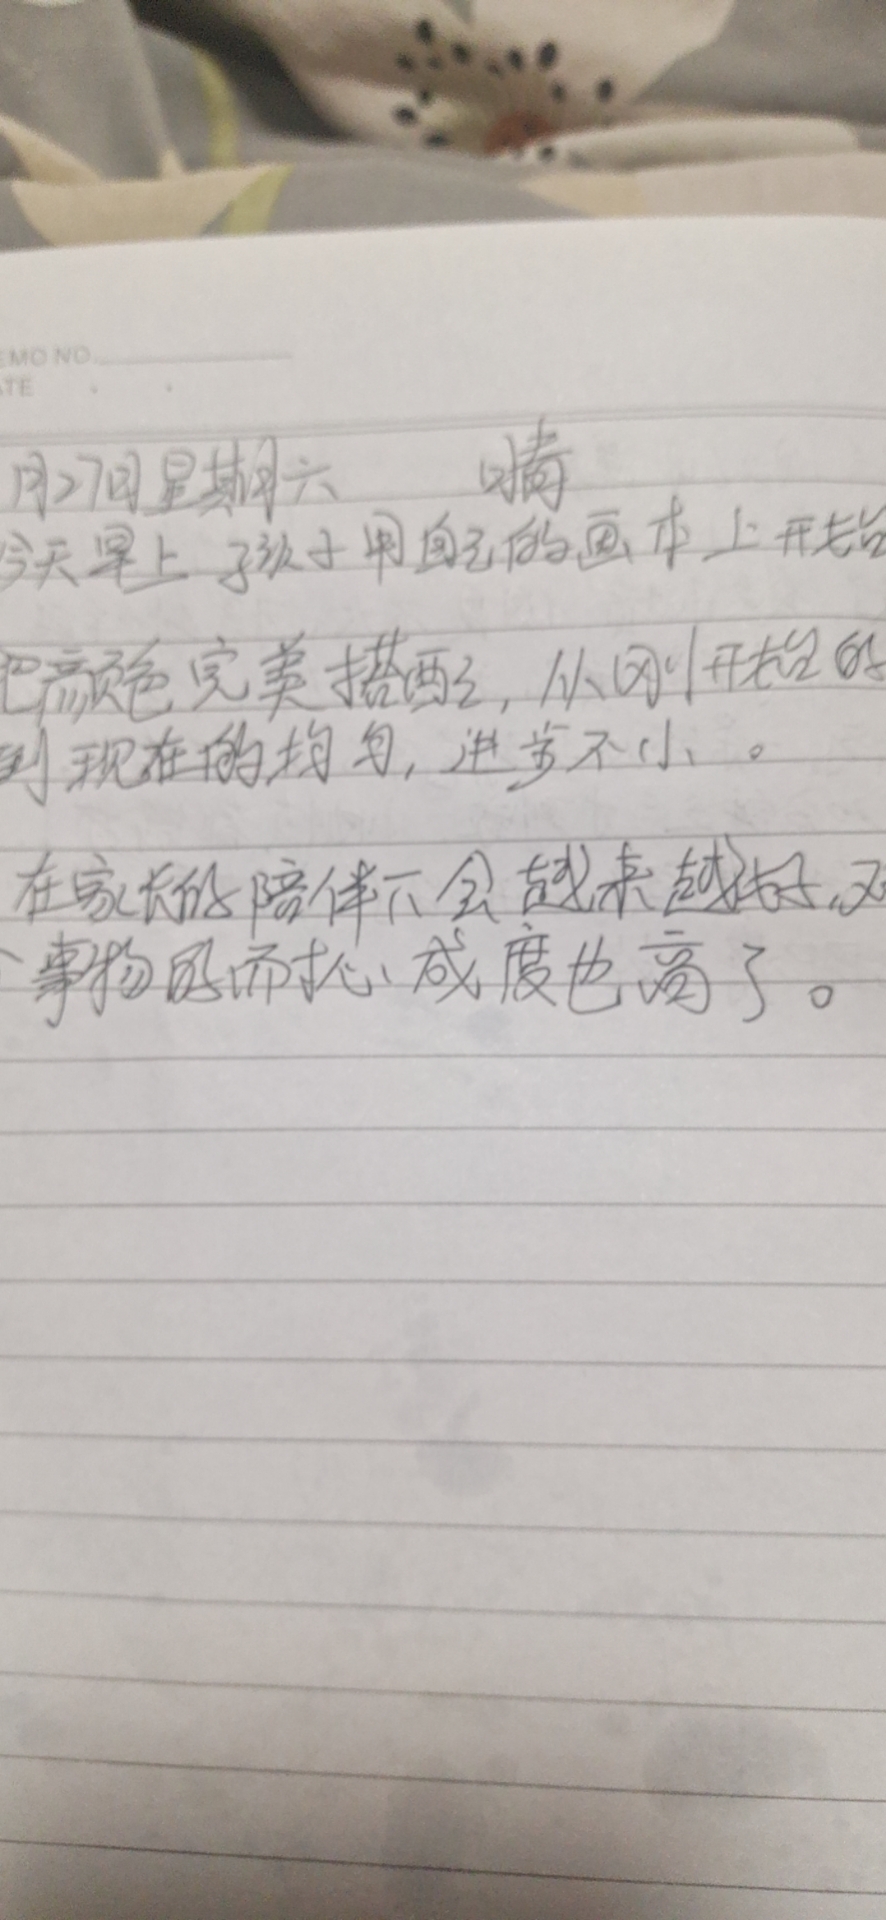 EMO NO.
ATE
月27日星期六 晴
今天早上孩子用自己的画本上开始
把颜色完美搭配,从刚开始的
到现在的均匀,进步不小。
在家长的陪伴下会越来越好,对
个事物的耐心成度也高了。